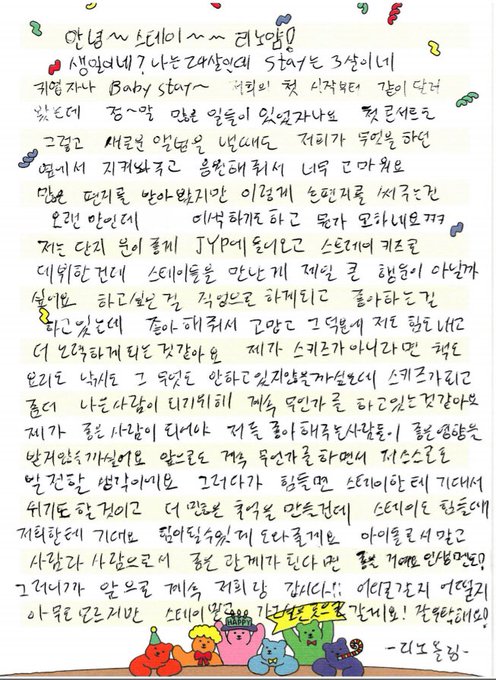 안녕~ 스테이~~ 리노얌!
생일이네? 나는 24살인데 Stay는 3살이네
귀엽자나 Baby stay~ 저희의 첫 시작부터 같이 달려
왔는데 정~말 많은 일들이 있었자나요 첫 콘서트도
그렇고 새로운 앨범을 낼때도 저희가 무엇을 하던
옆에서 지켜봐주고 응원해줘서 너무 고마워요
많은 편지를 받아 봤지만 이렇게 손편지를 써주는건
오랜만인데 어색하기도 하고 뭔가 묘하네요ㅋㅋ
저는 단지 운이 좋게 JYP에 들어오고 스트레이 키즈로
데뷔한건데 스테이들을 만난게 제일 큰 행운이 아닐까
싶어요 하고싶은걸 직업으로 하게되고 좋아하는걸
하고있는데 좋아해줘서 고맙고 그덕분에 저도 힘도내고
더 노력하게 되는것같아요 제가 스키즈가 아니라면 책도
요리도 낚시도 그 무엇도 안하고있지않을까싶은데 스키즈가되고
좀더 나은사람이 되기위해 계속 무언가를 하고있는것같아요
제가 좋은 사람이 되어야 저를 좋아해주는사람들이 좋은영향을
받지않을까싶어요 앞으로도 계속 무언가를 하면서 저스스로도
발전할 생각이에요 그러다가 힘들면 스테이한테 기대서
쉬기도 할것이고 더 많은 추억을 만들건데 스테이도 힘들때
저희한테 기대요 힘이될수있게 도와줄게요 아이돌로서 말고
사람과 사람으로서 좋은 관계가 된다면 좋을 거에요 인생면도!
그러니까 앞으로 계속 저희랑 갑시다!! 어디로갈지 어떨지
아무도 모르지만 스테이 갈게요! 잘부탁해요!
HAPPY
-리노올림-